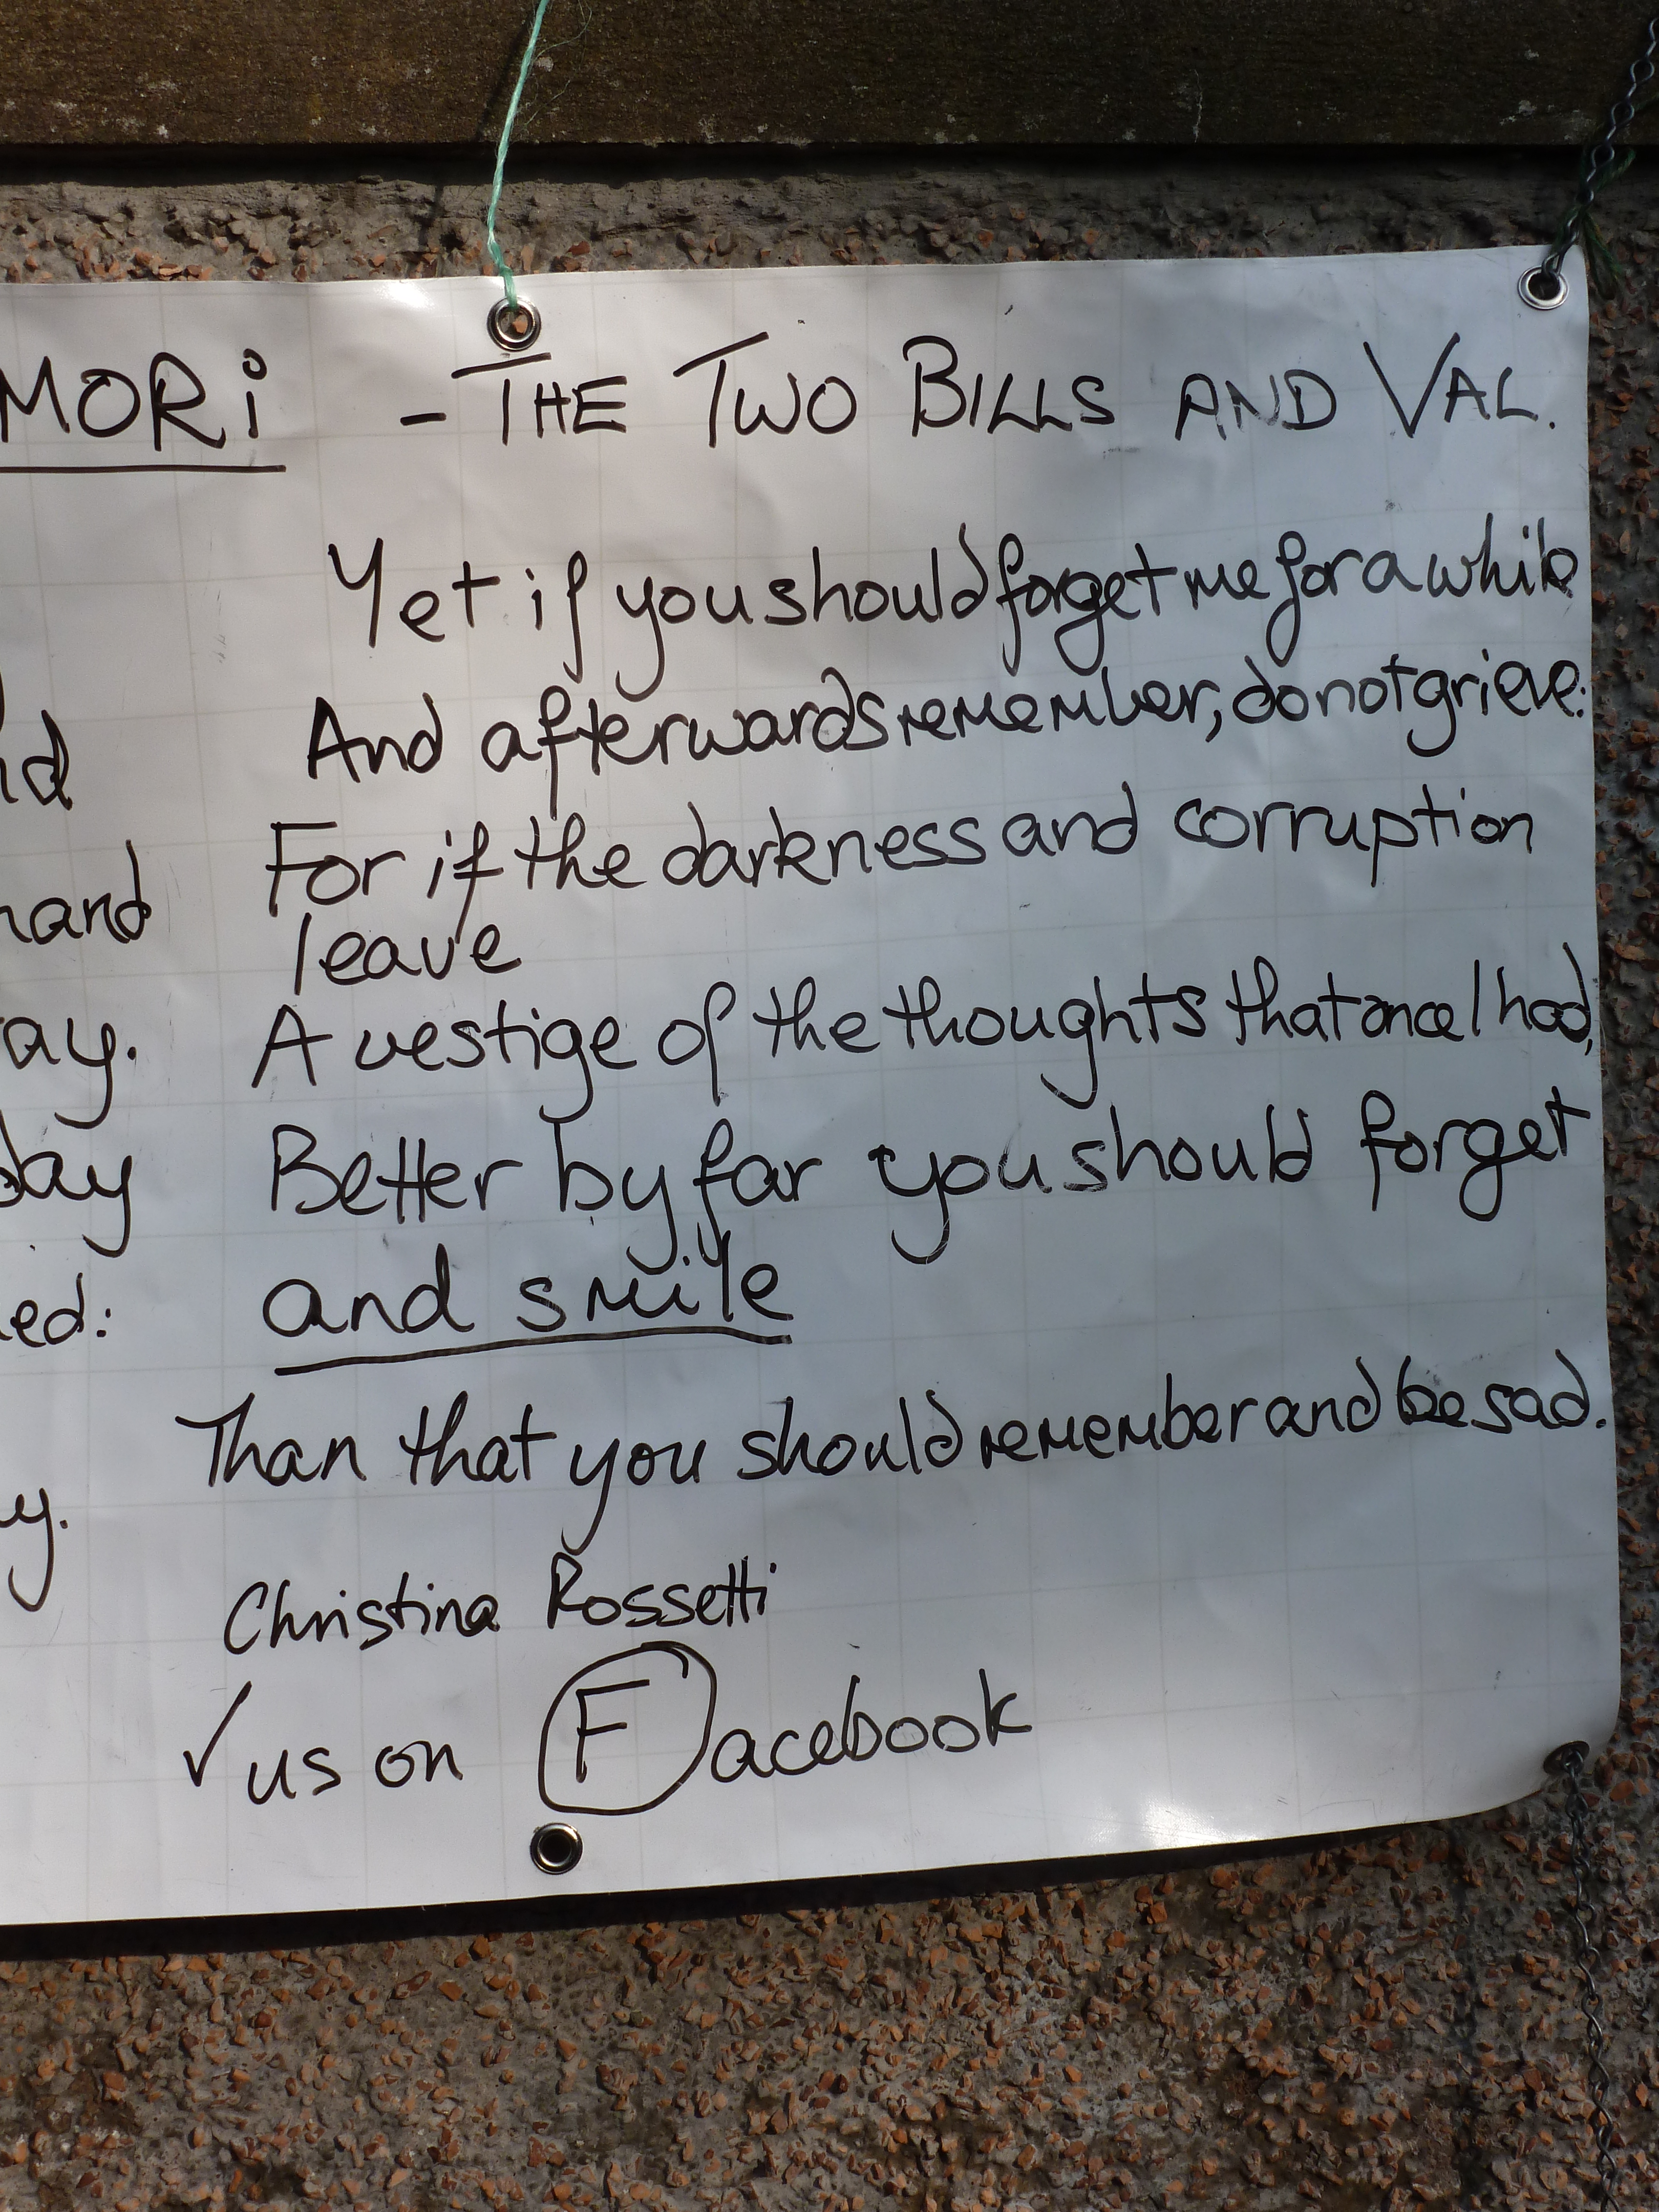 MORi - THE TWO BILLS AND VAL.
Yet if you should forget me for a while
And afterwards remember, do not grieve:
hand For if the darkness and corruption
leave
ay. A vestige of the thoughts that once I had,
day Better by far you should forget
ed: and smile
Than that you should remember and be sad.
y.
Christina Rossetti
✓ us on Facebook